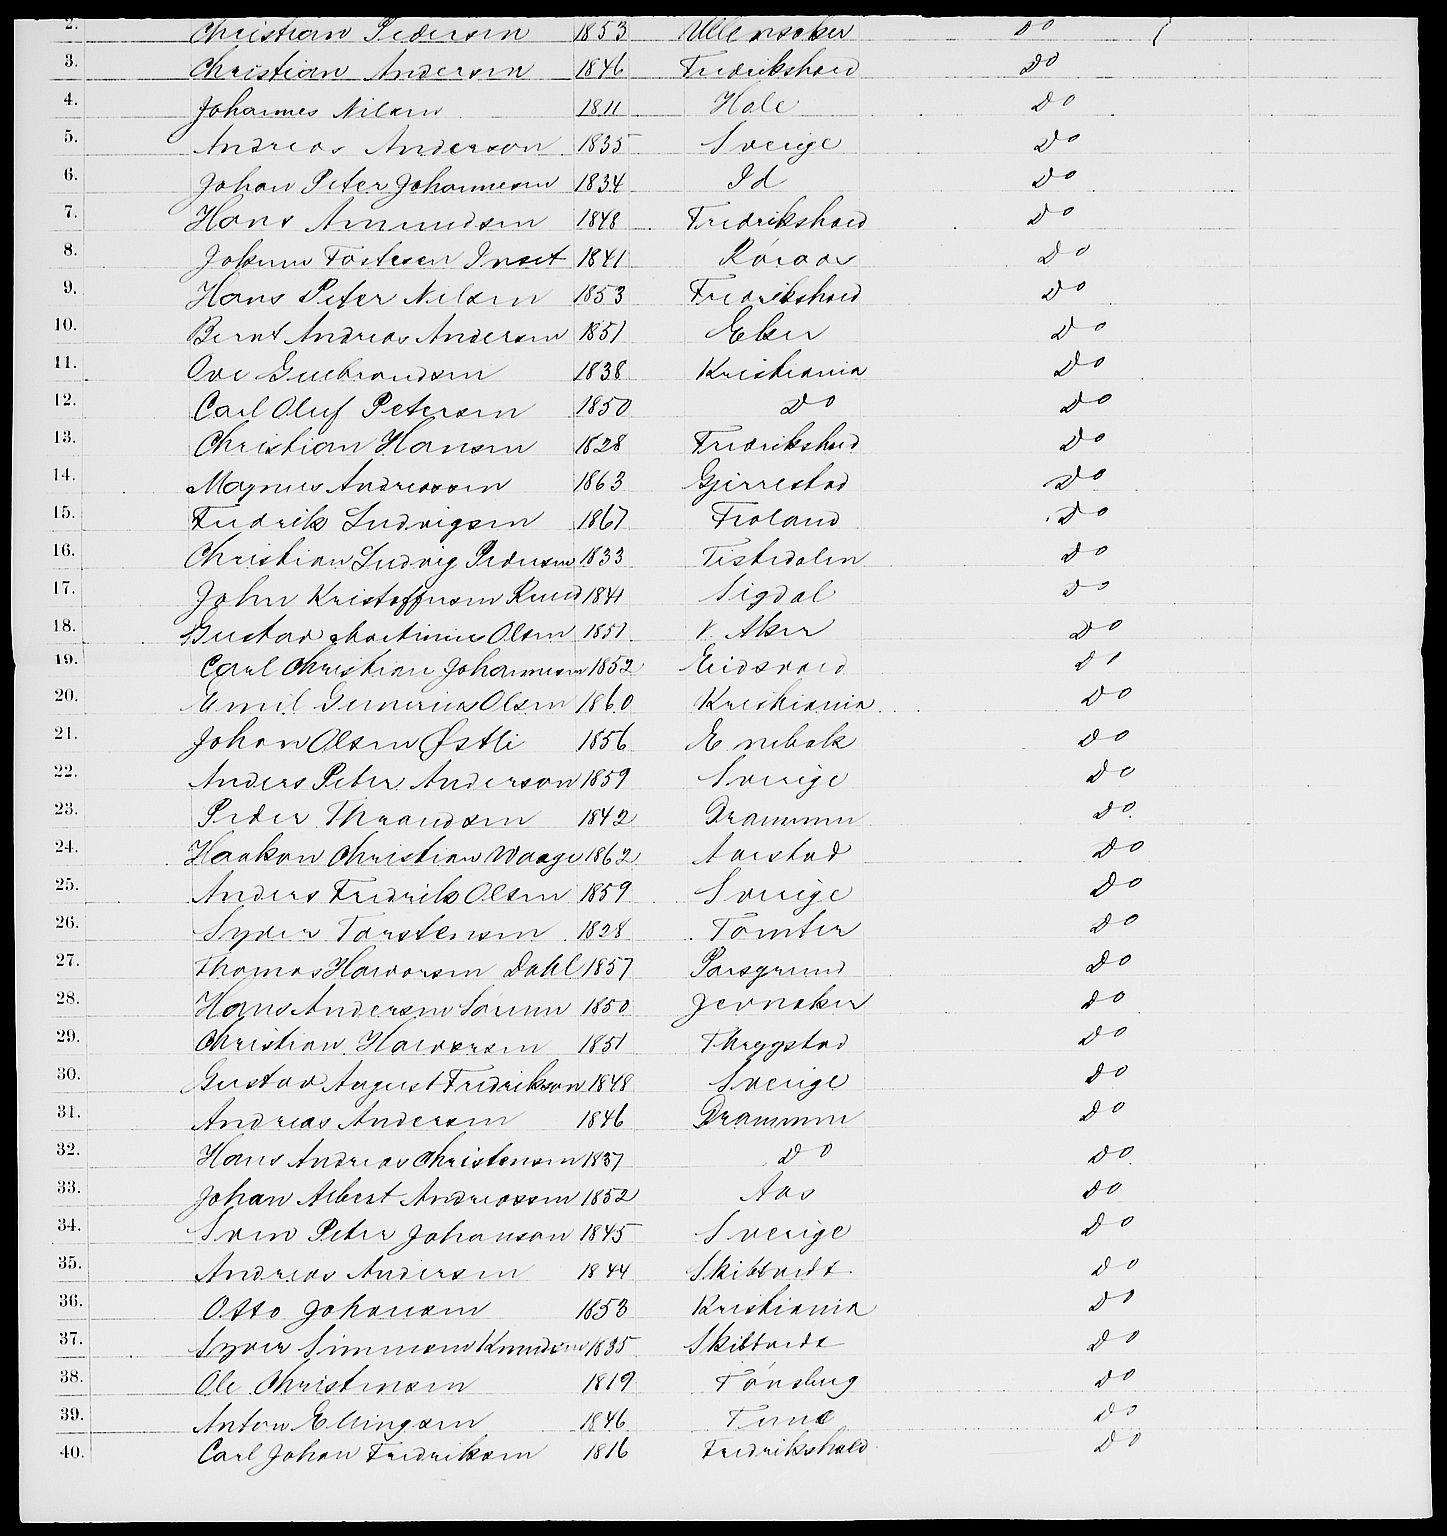 2. Christian Pedersen 1853 Ullensaker Do
3. Christian Andersen 1846 Fredrikshald Do
4. Johannes Nilsen 1811 Hole Do
5. Andreas Anderson 1835 Sverige Do
6. Johan Peter Johannesen 1834 Id Do
7. Hans Amundsen 1848 Fredrikshald Do
8. Johann Tostesen Inset 1841 Röraas Do
9. Hans Peter Nilsen 1853 Fredrikshald Do
10. Bernt Andreas Andersen 1851 Eker Do
11. Ove Gulbrandsen 1838 Kristiania Do
12. Carl Oluf Petersen 1850 Do Do
13. Christian Hansen 1828 Fredrikshald Do
14. Magnus Andreassen 1863 Gjerrestad Do
15. Fredrik Ludvigsen 1867 Froland Do
16. Christian Ludvig Pedersen 1833 Tistedalen Do
17. John Kristoffersen Ruud 1841 Sigdal Do
18. Gustav Martinius Olsen 1851 V. Aker Do
19. Carl Christian Johannesen 1852 Eidsvold Do
20. Emil Gunerius Olsen 1860 Kristiania Do
21. Johan Olsen Østli 1856 Enebak Do
22. Anders Peter Anderson 1859 Sverige Do
23. Peder Thrandsen 1842 Drammen Do
24. Haakon Christian Waage 1862 Aarstad Do
25. Anders Fredrik Olsen 1859 Sverige Do
26. Syver Torstensen 1828 Tomter Do
27. Thomas Halvorsen Dahl 1857 Porsgrund Do
28. Hans Andersen Sörum 1850 Jevnaker Do
29. Christian Halvorsen 1851 Thrygstad Do
30. Gustav August Fredrikson 1848 Sverige Do
31. Andreas Andersen 1846 Drammen Do
32. Hans Andreas Christensen 1837 Do Do
33. Johan Albert Andreassen 1852 Aas Do
34. Sven Peter Johanson 1845 Sverige Do
35. Andreas Andersen 1844 Skibtvedt Do
36. Otto Johansen 1853 Kristiania Do
37. Syver Simensen Knudsen 1835 Skibtvedt Do
38. Ole Christensen 1819 Tönsberg Do
39. Anton Ellingsen 1846 Tune Do
40. Carl Johan Fredriksen 1816 Fredrikshald Do